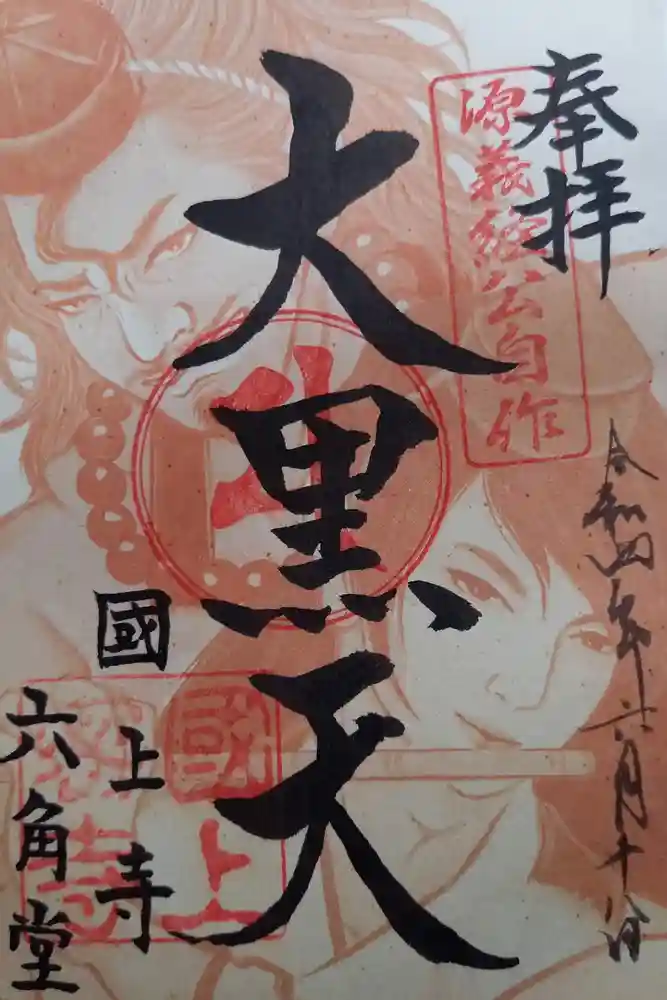 奉拝
源義経公自作
令和四年六月十八日
大黒天
國上寺
六角堂
國上